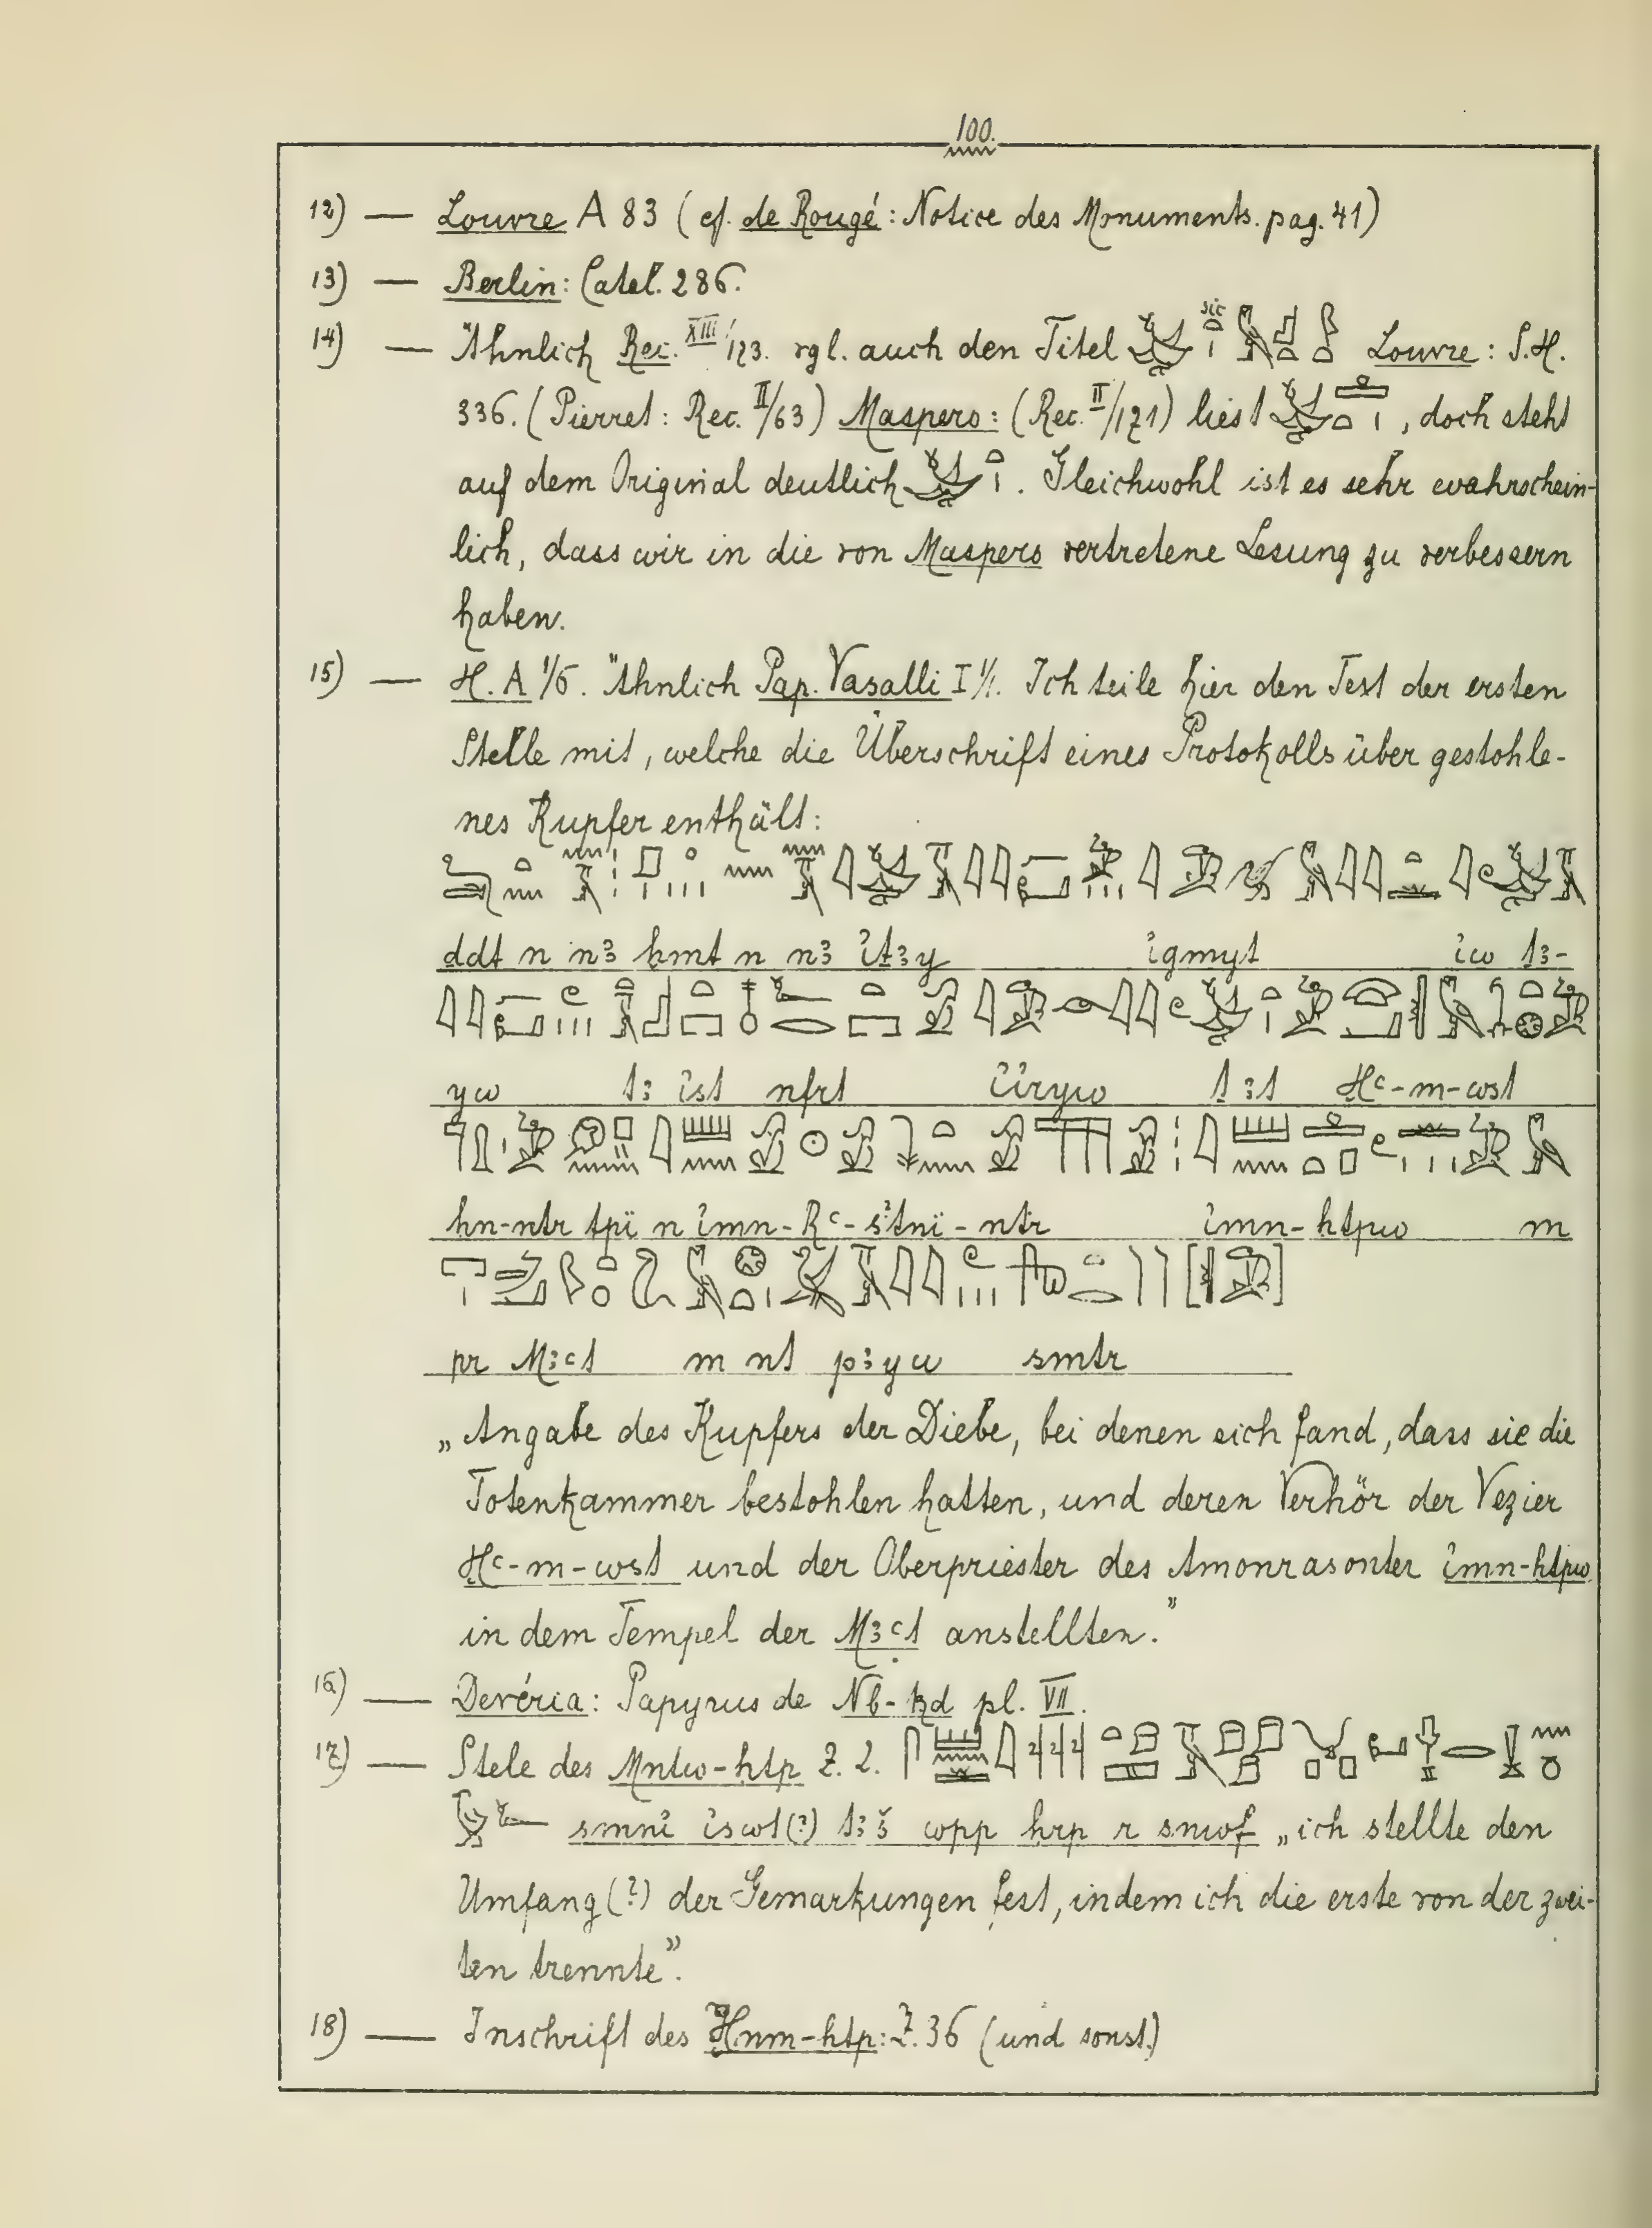 100.
12) — Louvre A 83 (cf. de Rougé: Notice des Monuments. pag. 41)
13) — Berlin: Catal. 286.
14) — Ähnlich Rec. XIII/173. vgl. auch den Titel sic Louvre: S.H.
336. (Pierret: Rec. II/63) Maspero: (Rec. II/171) liest , doch steht
auf dem Original deutlich . Gleichwohl ist es sehr wahrschein-
lich, dass wir in die von Maspero vertretene Lesung zu verbessern
haben.
15) — H. A 1/6. Ähnlich Pap. Vasalli I 1/1. Ich teile hier den Text der ersten
Stelle mit, welche die Überschrift eines Protokolls über gestohle-
nes Kupfer enthält:
ddt n n3 hmt n n3 it3y igmyt iw t3-
yw t3 ist nfrt iiryw t3t Hʿ-m-wst
hn-ntr tpï n imn-Rʿ-śtnï-ntr imn-htpw m
pr M3ʿt m nt p3yw smtr
„Angabe des Kupfers der Diebe, bei denen sich fand, dass sie die
Totenkammer bestohlen hatten, und deren Verhör der Vezier
Hʿ-m-wst und der Oberpriester des Amonrasonter imn-htpw
in dem Tempel der M3ʿt anstellten."
16) — Devéria: Papyrus de Nb-kd pl. VII.
17) — Stele des Mntw-htp Z. 2.
smni iswt(?) t3š wpp hrp r snwf „ich stellte den
Umfang (?) der Gemarkungen fest, indem ich die erste von der zwei-
ten trennte".
18) — Inschrift des Hnm-htp: Z. 36 (und sonst.)